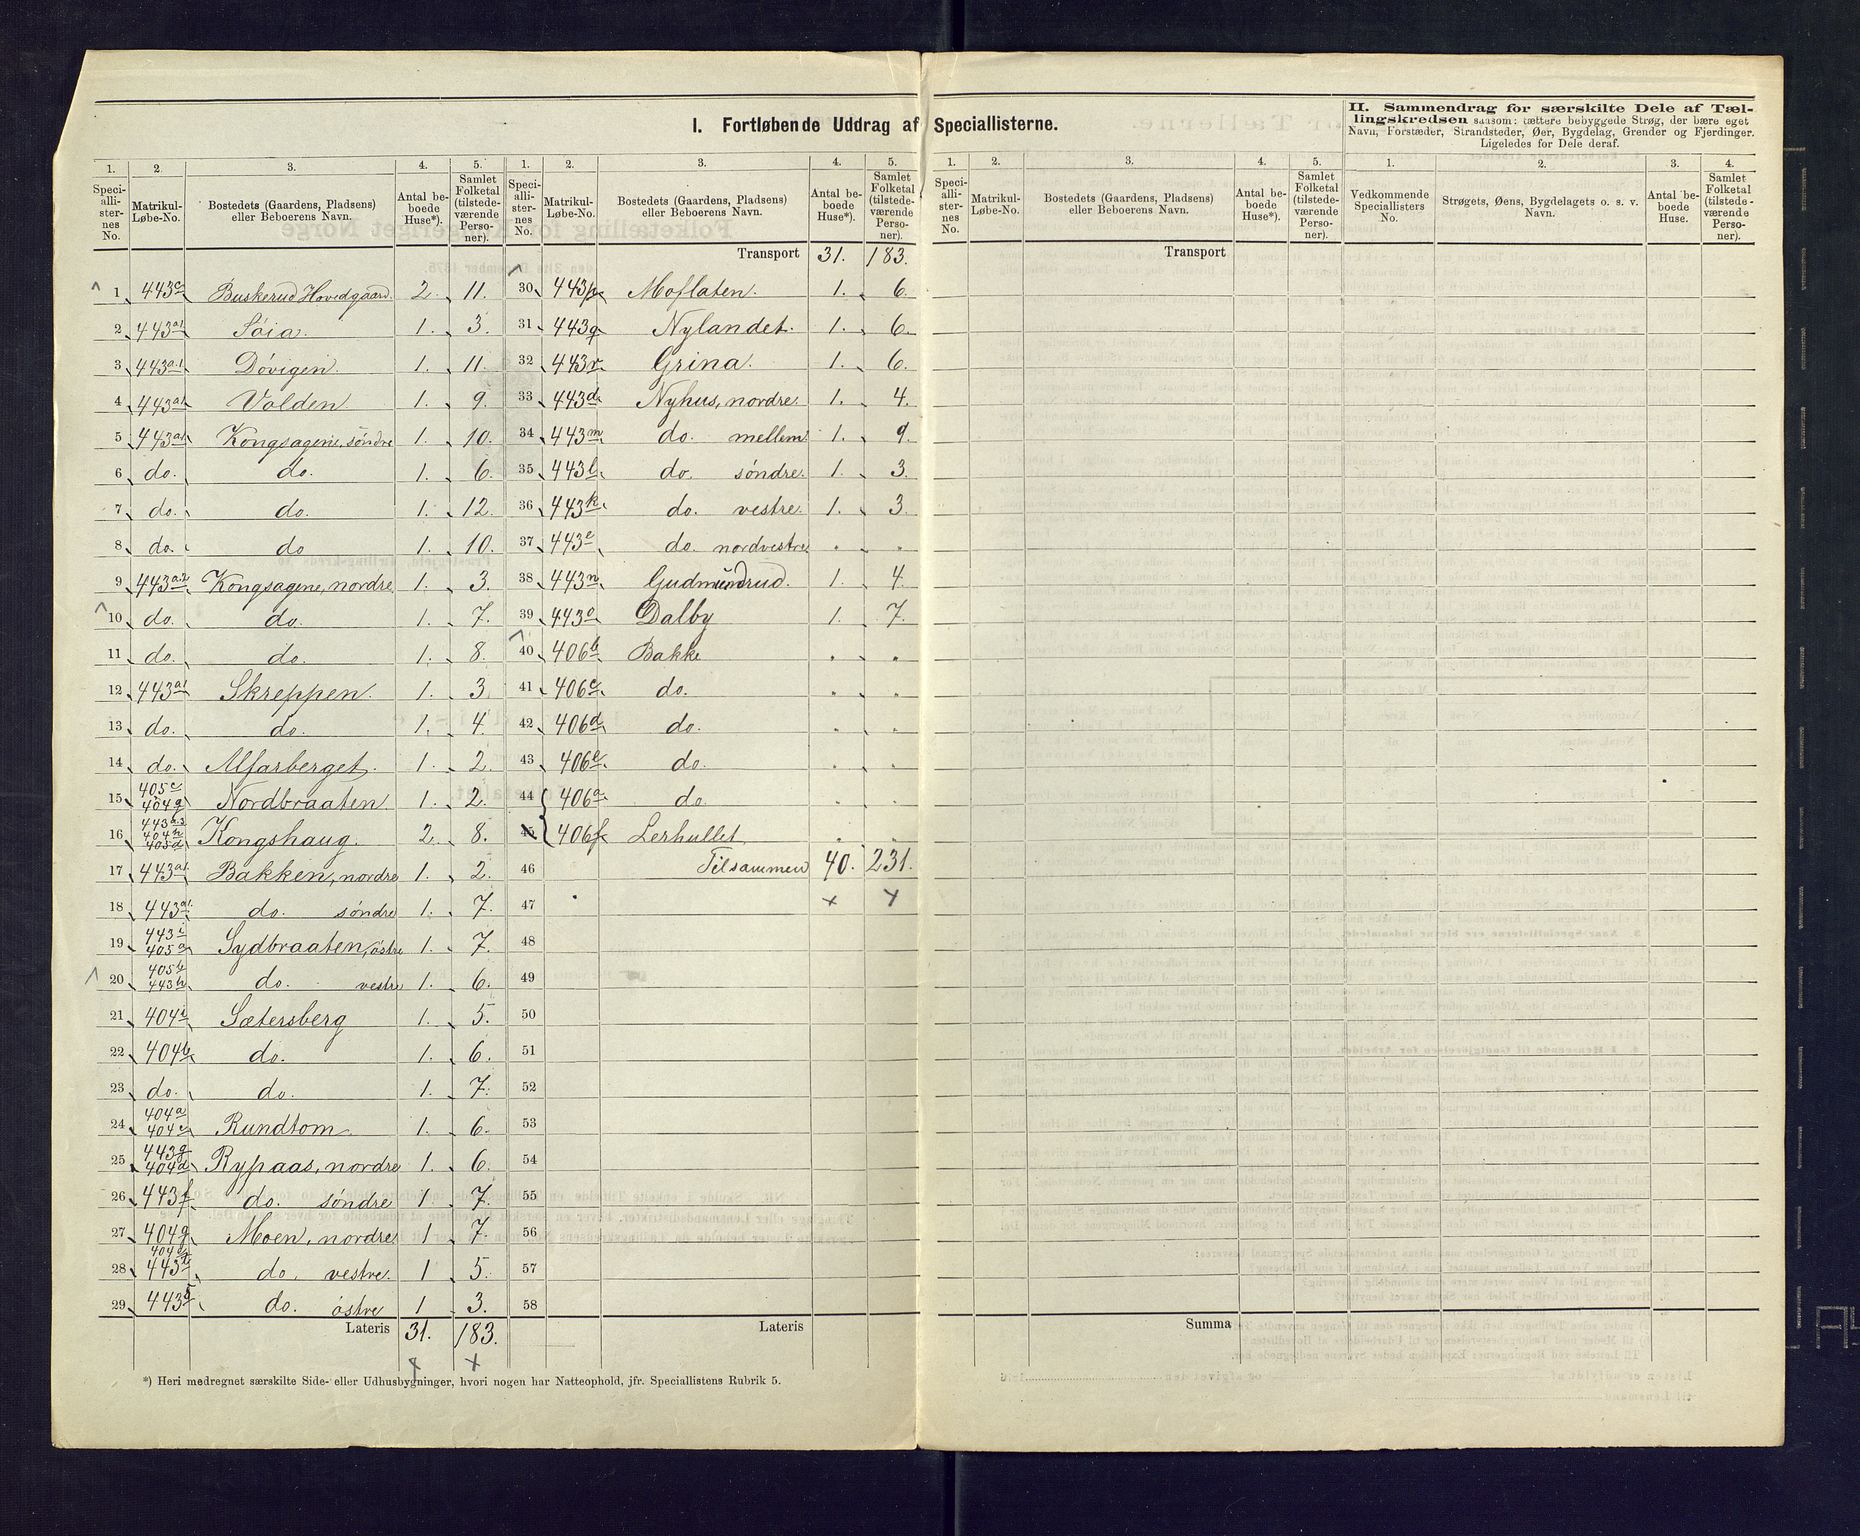 I. Fortløbende Uddrag af Speciallisterne.
II. Sammendrag for særskilte Dele af Tæl-
lingskredsen saasom: tættere bebyggede Strøg, der bære eget
Navn, Forstæder, Strandsteder, Øer, Bygdelag, Grender og Fjerdinger.
Ligeledes for Dele deraf.
1. 2. 3. 4. 5. 1. 2. 3. 4. 5. 1. 2. 3. 4. 5. 1. 2. 3. 4.
Speci-allister-nes No. Matrikul-Løbe-No. Bostedets (Gaardens, Pladsens) eller Beboerens Navn. Antal be-boede Huse*). Samlet Folketal (tilstede-værende Perso-ner).
Speci-allister-nes No. Matrikul-Løbe-No. Bostedets (Gaardens, Pladsens) eller Beboerens Navn. Antal be-boede Huse*). Samlet Folketal (tilstede-værende Perso-ner).
Speci-allister-nes No. Matrikul-Løbe-No. Bostedets (Gaardens, Pladsens) eller Beboerens Navn. Antal be-boede Huse*). Samlet Folketal (tilstede-værende Perso-ner).
Vedkommende Speciallisters No. Strøgets, Øens, Bygdelagets o. s. v. Navn. Antal be-boede Huse. Samlet Folketal (tilstede-værende Perso-ner).
1 443c Buskerud Hovedgaard. 2. 11.
2 443a1 Söia. 1. 3.
3 443a.1 Dövigen. 1. 11.
4 443a1 Volden 1. 9.
5 443a1 Kongsagene, söndre 1. 10.
6 do. do. 1. 6.
7 do. do. 1. 12.
8 do. do 1. 10.
9 443a.2 Kongsagene, nordre 1. 3.
10 do. do. 1. 7.
11 do. do. 1. 8.
12 443a1 Skreppen. 1. 3
13 do. do. 1. 4.
14 do. Alfarberget. 1. 2.
15 405c 404g Nordbraaten 1. 2.
16 443a.3 404h 405d Kongshaug. 2. 8.
17 443a1 Bakken, nordre 1. 2.
18 443a1. do. söndre 1. 7.
19 443i 405a Sydbraaten, östre 1. 7.
20 405b 443h do. vestre 1. 6.
21 404i Sætersberg 1. 5.
22 404b do. 1. 6.
23 do. do. 1. 7.
24 404a 404c Rundtom 1. 6.
25 443g 404d Rypaas, nordre 1. 6.
26 443f do. söndre 1 7.
27 404g Moen, nordre 1 7.
28 443t do. vestre. 1 5.
29 443s do. östre 1 3.
Lateris 31. 183.
Transport 31. 183.
30 443p Moflaten. 1. 6.
31 443q Nylandet. 1. 6.
32 443r Grina. 1. 6.
33 443d Nyhus, nordre 1. 4.
34 443m do. mellem 1. 9.
35 443l do. söndre. 1. 3.
36 443k do. vestre. 1. 3.
37 443e do. nordvestre. " "
38 443n Gudmundrud. 1. 4.
39 443o Dalby 1. 7.
40 406b Bakke " "
41 406c do. " "
42 406d do. " "
43 406e do. " "
44 406a do. " "
45 406f Lerhullet " "
46 Tilsammen 40. 231.
47
48
49
50
51
52
53
54
55
56
57
58
Lateris
Transport
Summa
*) Heri medregnet særskilte Side- eller Udhusbygninger, hvori nogen har Natteophold, jfr. Speciallistens Rubrik 5.